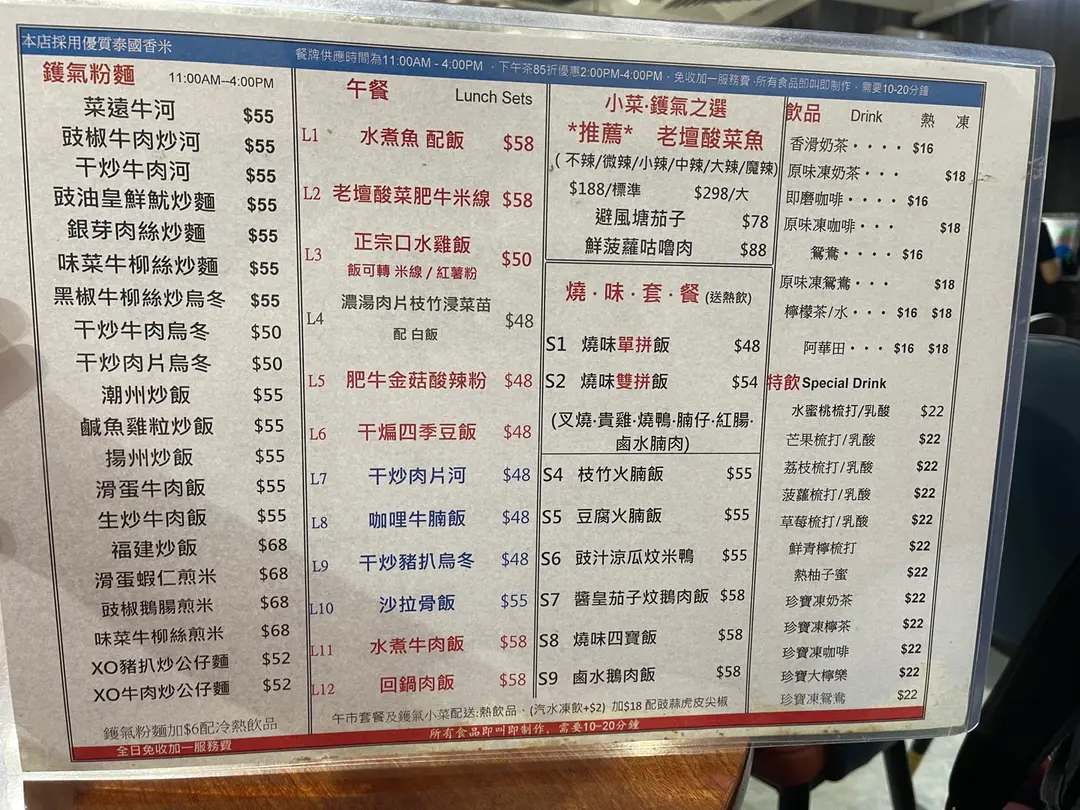 本店採用優質泰國香米
餐牌供應時間為11:00AM - 4:00PM ‧下午茶85折優惠2:00PM-4:00PM‧免收加一服務費‧所有食品即叫即制作‧需要10-20分鐘
鑊氣粉麵 11:00AM--4:00PM
菜遠牛河 $55
豉椒牛肉炒河 $55
干炒牛肉河 $55
豉油皇鮮魷炒麵 $55
銀芽肉絲炒麵 $55
味菜牛柳絲炒麵 $55
黑椒牛柳絲炒烏冬 $55
干炒牛肉烏冬 $50
干炒肉片烏冬 $50
潮州炒飯 $55
鹹魚雞粒炒飯 $55
揚州炒飯 $55
滑蛋牛肉飯 $55
生炒牛肉飯 $55
福建炒飯 $68
滑蛋蝦仁煎米 $68
豉椒鵝腸煎米 $68
味菜牛柳絲煎米 $68
XO豬扒炒公仔麵 $52
XO牛肉炒公仔麵 $52
鑊氣粉麵加$6配冷熱飲品
午餐 Lunch Sets
L1 水煮魚 配飯 $58
L2 老壇酸菜肥牛米線 $58
L3 正宗口水雞飯 $50
飯可轉 米線 / 紅薯粉
L4 濃湯肉片枝竹浸菜苗 $48
配 白飯
L5 肥牛金菇酸辣粉 $48
L6 干煸四季豆飯 $48
L7 干炒肉片河 $48
L8 咖哩牛腩飯 $48
L9 干炒豬扒烏冬 $48
L10 沙拉骨飯 $55
L11 水煮牛肉飯 $58
L12 回鍋肉飯 $58
小菜‧鑊氣之選
*推薦* 老壇酸菜魚
( 不辣/微辣/小辣/中辣/大辣/魔辣)
$188/標準 $298/大
避風塘茄子 $78
鮮菠蘿咕嚕肉 $88
燒‧味‧套‧餐 (送熱飲)
S1 燒味單拼飯 $48
S2 燒味雙拼飯 $54
(叉燒‧貴雞‧燒鴨‧腩仔‧紅腸‧
鹵水腩肉)
S4 枝竹火腩飯 $55
S5 豆腐火腩飯 $55
S6 豉汁涼瓜炆米鴨 $55
S7 醬皇茄子炆鵝肉飯 $58
S8 燒味四寶飯 $58
S9 鹵水鵝肉飯 $58
飲品 Drink 熱 凍
香滑奶茶‧‧‧‧ $16
原味凍奶茶‧‧‧ $18
即磨咖啡‧‧‧‧ $16
原味凍咖啡‧‧‧ $18
鴛鴦‧‧‧‧ $16
原味凍鴛鴦‧‧‧ $18
檸檬茶/水‧‧‧ $16 $18
阿華田‧‧‧ $16 $18
特飲 Special Drink
水蜜桃梳打/乳酸 $22
芒果梳打/乳酸 $22
荔枝梳打/乳酸 $22
菠蘿梳打/乳酸 $22
草莓梳打/乳酸 $22
鮮青檸梳打 $22
熱柚子蜜 $22
珍寶凍奶茶 $22
珍寶凍檸茶 $22
珍寶凍咖啡 $22
珍寶大檸樂 $22
珍寶凍鴛鴦 $22
午市套餐及鑊氣小菜配送:熱飲品、(汽水凍飲+$2) 加$18 配豉蒜虎皮尖椒
全日免收加一服務費
所有食品即叫即制作，需要10-20分鐘